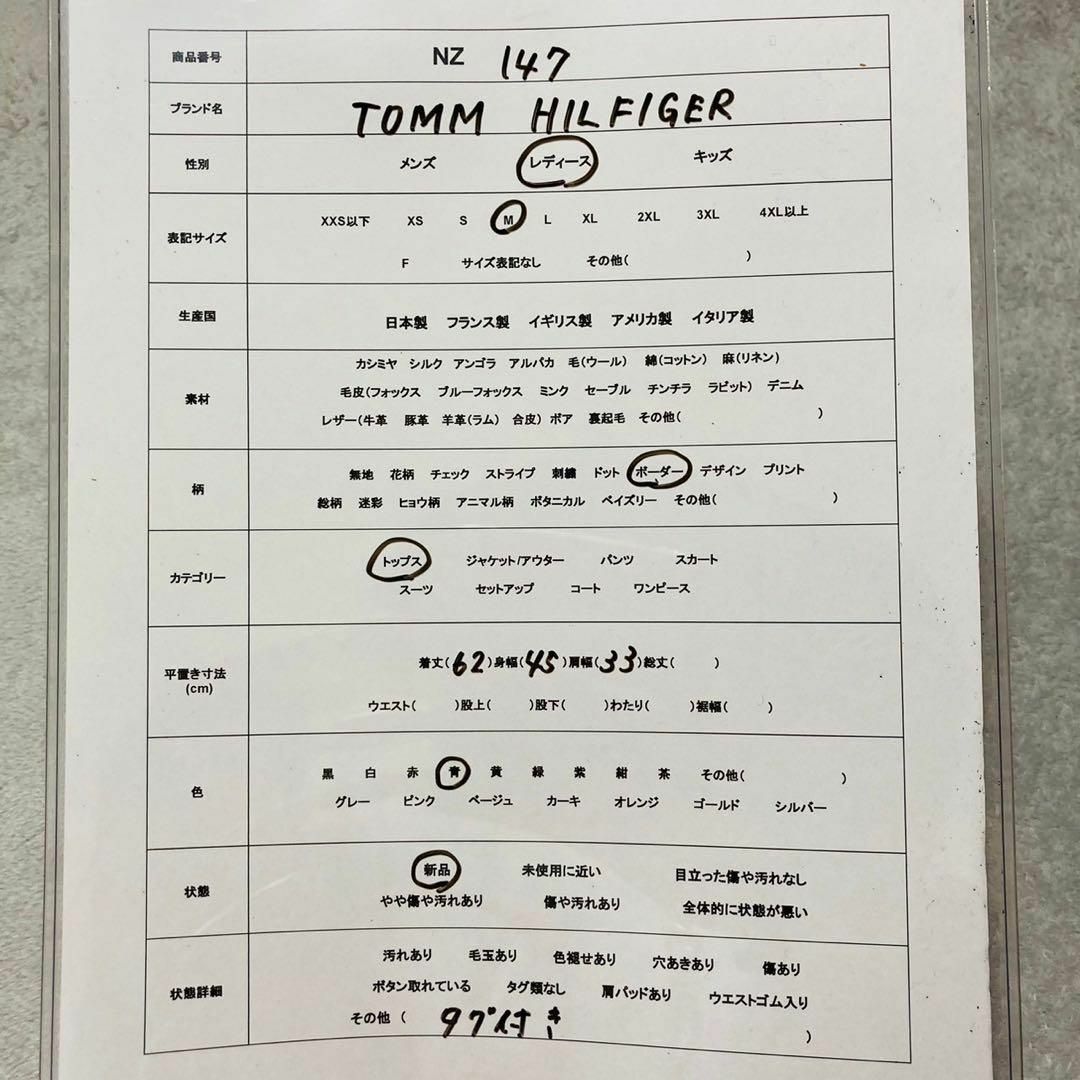 商品番号 NZ 147
ブランド名 TOMM HILFIGER
性別 メンズ レディース キッズ
表記サイズ XXS以下 XS S M L XL 2XL 3XL 4XL以上
F サイズ表記なし その他( )
生産国 日本製 フランス製 イギリス製 アメリカ製 イタリア製
素材 カシミヤ シルク アンゴラ アルパカ 毛(ウール) 綿(コットン) 麻(リネン)
毛皮(フォックス ブルーフォックス ミンク セーブル チンチラ ラビット) デニム
レザー(牛革 豚革 羊革(ラム) 合皮) ボア 裏起毛 その他( )
柄 無地 花柄 チェック ストライプ 刺繍 ドット ボーダー デザイン プリント
総柄 迷彩 ヒョウ柄 アニマル柄 ボタニカル ペイズリー その他( )
カテゴリー トップス ジャケット/アウター パンツ スカート
スーツ セットアップ コート ワンピース
平置き寸法 着丈(62)身幅(45)肩幅(33)総丈( )
(cm) ウエスト( )股上( )股下( )わたり( )裾幅( )
色 黒 白 赤 青 黄 緑 紫 紺 茶 その他( )
グレー ピンク ベージュ カーキ オレンジ ゴールド シルバー
状態 新品 未使用に近い 目立った傷や汚れなし
やや傷や汚れあり 傷や汚れあり 全体的に状態が悪い
状態詳細 汚れあり 毛玉あり 色褪せあり 穴あきあり 傷あり
ボタン取れている タグ類なし 肩パッドあり ウエストゴム入り
その他 ( タグ付き )